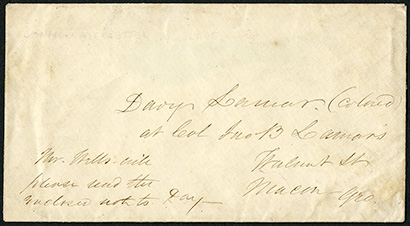 Davy Lamar (Colored)
at Col Jno B Lamar's
Walnut St
Macon Geo
Mr. Wills will
please send the
enclosed note to Day